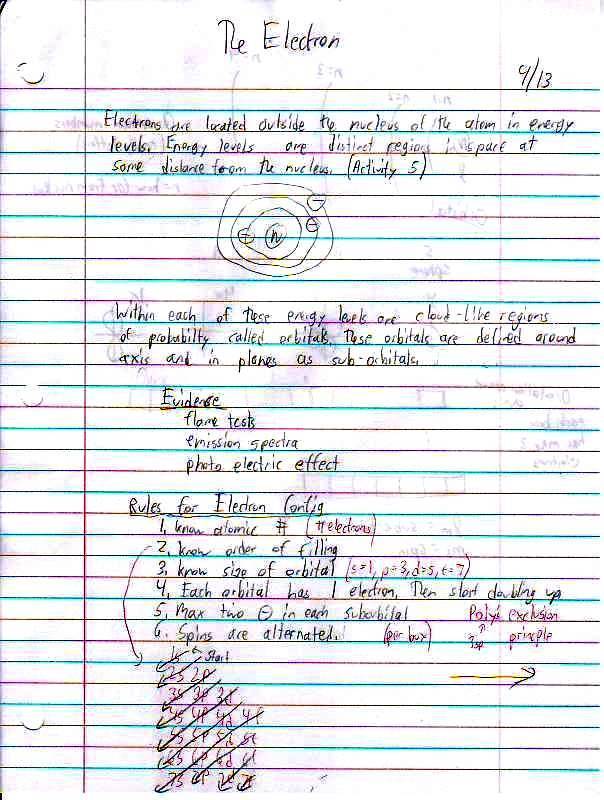 The Electron
4/13
Electrons are located outside the nucleus of the atom in energy
levels. Energy levels are distinct regions in space at
some distance from the nucleus. (Activity 5)
N
Within each of these energy levels are cloud-like regions
of probabilty called orbitals. These orbitals are defined around
axis and in planes as sub-orbitals.
Evidense
flame tests
emission spectra
photo electric effect
Rules for Electron Config
1. know atomic # (# electrons)
2. know order of filling
3. know size of orbital (s=1, p=3, d=5, f=7)
4. Each orbital has 1 electron, Then start doubling up
5. Max two ⊖ in each suborbital Poly's exclusion
6. Spins are alternated. (per box) ?sp priniple
1s Start
2s 2p
3s 3p 3d
4s 4p 4d 4f
5s 5p 5d 5f
6s 6p 6d 6f
7s 7p 7d 7f